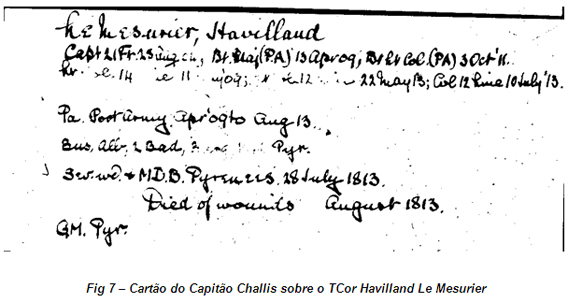 Le Mesurier, Havilland
Capt 21 Ft 25 Aug 04, Bt. Maj (PA) 13 Apr 09; Bt Lt Col. (PA) 3 Oct '11.
14 11 09; 12 22 May 13; Col 12 Line 10 July '13.
Pa. Port Army. Apr 09 to Aug 13.
Bus, Alb, 2 Bad, Pyr.
Sev. wd. & M.D.B. Pyrenees. 28 July 1813.
Died of wounds August 1813.
G.M. Pyr.
Fig 7 – Cartão do Capitão Challis sobre o TCor Havilland Le Mesurier